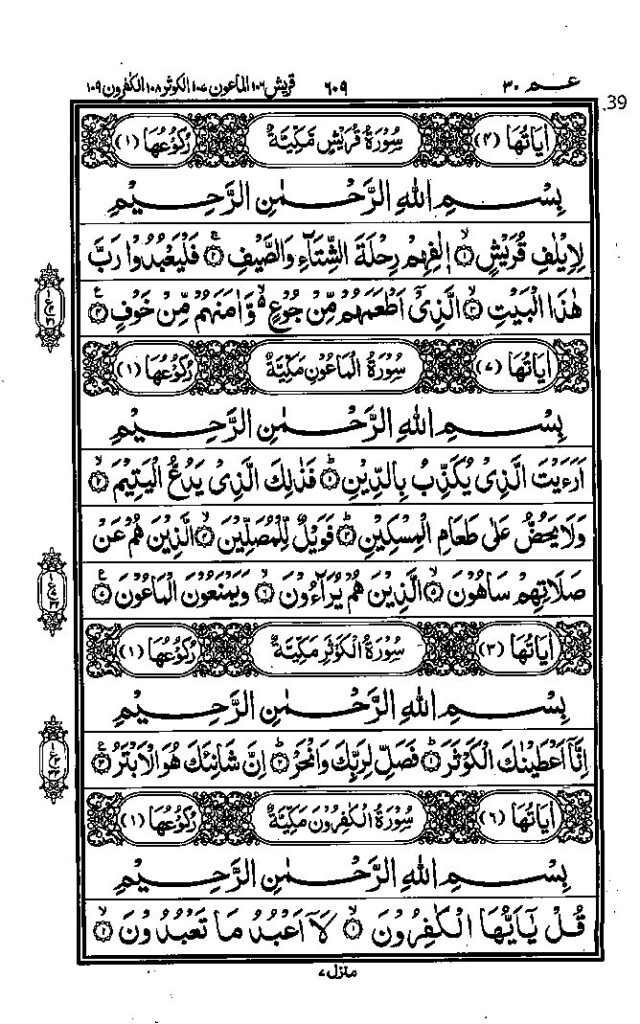 عم ٣٠ ٦٠٩ قريش ١٠٦ الماعون ١٠٧ الكوثر ١٠٨ الكفرون ١٠٩
39
اٰيَاتُهَا (٤) سُوْرَةُ قُرَيْشٍ مَّكِّيَّةٌ رُكُوْعُهَا (١)
بِسْمِ اللّٰهِ الرَّحْمٰنِ الرَّحِيْمِ
لِاِيْلٰفِ قُرَيْشٍ ۙ﴿١﴾ اٖلٰفِهِمْ رِحْلَةَ الشِّتَآءِ وَالصَّيْفِ ۚ﴿٢﴾ فَلْيَعْبُدُوْا رَبَّ
هٰذَا الْبَيْتِ ۙ﴿٣﴾ الَّذِيْۤ اَطْعَمَهُمْ مِّنْ جُوْعٍ ۙ وَّاٰمَنَهُمْ مِّنْ خَوْفٍ ﴿٤﴾
ع
اٰيَاتُهَا (٧) سُوْرَةُ الْمَاعُوْنِ مَكِّيَّةٌ رُكُوْعُهَا (١)
بِسْمِ اللّٰهِ الرَّحْمٰنِ الرَّحِيْمِ
اَرَءَيْتَ الَّذِيْ يُكَذِّبُ بِالدِّيْنِ ؕ﴿١﴾ فَذٰلِكَ الَّذِيْ يَدُعُّ الْيَتِيْمَ ۙ﴿٢﴾
وَلَا يَحُضُّ عَلٰى طَعَامِ الْمِسْكِيْنِ ؕ﴿٣﴾ فَوَيْلٌ لِّلْمُصَلِّيْنَ ۙ﴿٤﴾ الَّذِيْنَ هُمْ عَنْ
صَلَاتِهِمْ سَاهُوْنَ ۙ﴿٥﴾ الَّذِيْنَ هُمْ يُرَآءُوْنَ ۙ﴿٦﴾ وَيَمْنَعُوْنَ الْمَاعُوْنَ ﴿٧﴾
ع
اٰيَاتُهَا (٣) سُوْرَةُ الْكَوْثَرِ مَكِّيَّةٌ رُكُوْعُهَا (١)
بِسْمِ اللّٰهِ الرَّحْمٰنِ الرَّحِيْمِ
اِنَّاۤ اَعْطَيْنٰكَ الْكَوْثَرَ ؕ﴿١﴾ فَصَلِّ لِرَبِّكَ وَانْحَرْ ؕ﴿٢﴾ اِنَّ شَانِئَكَ هُوَ الْاَبْتَرُ ﴿٣﴾
ع
اٰيَاتُهَا (٦) سُوْرَةُ الْكٰفِرُوْنَ مَكِّيَّةٌ رُكُوْعُهَا (١)
بِسْمِ اللّٰهِ الرَّحْمٰنِ الرَّحِيْمِ
قُلْ يٰۤاَيُّهَا الْكٰفِرُوْنَ ۙ﴿١﴾ لَاۤ اَعْبُدُ مَا تَعْبُدُوْنَ ۙ﴿٢﴾
منزل ٧